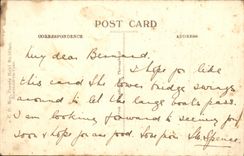 POST CARD
CORRESPONDENCE
ADDRESS
My dear Bernard
I hope you like
this card the tower bridge swings
around to let the large boats pass.
I am looking forward to seeing you
soon & hope for as good. Love from M. Spence